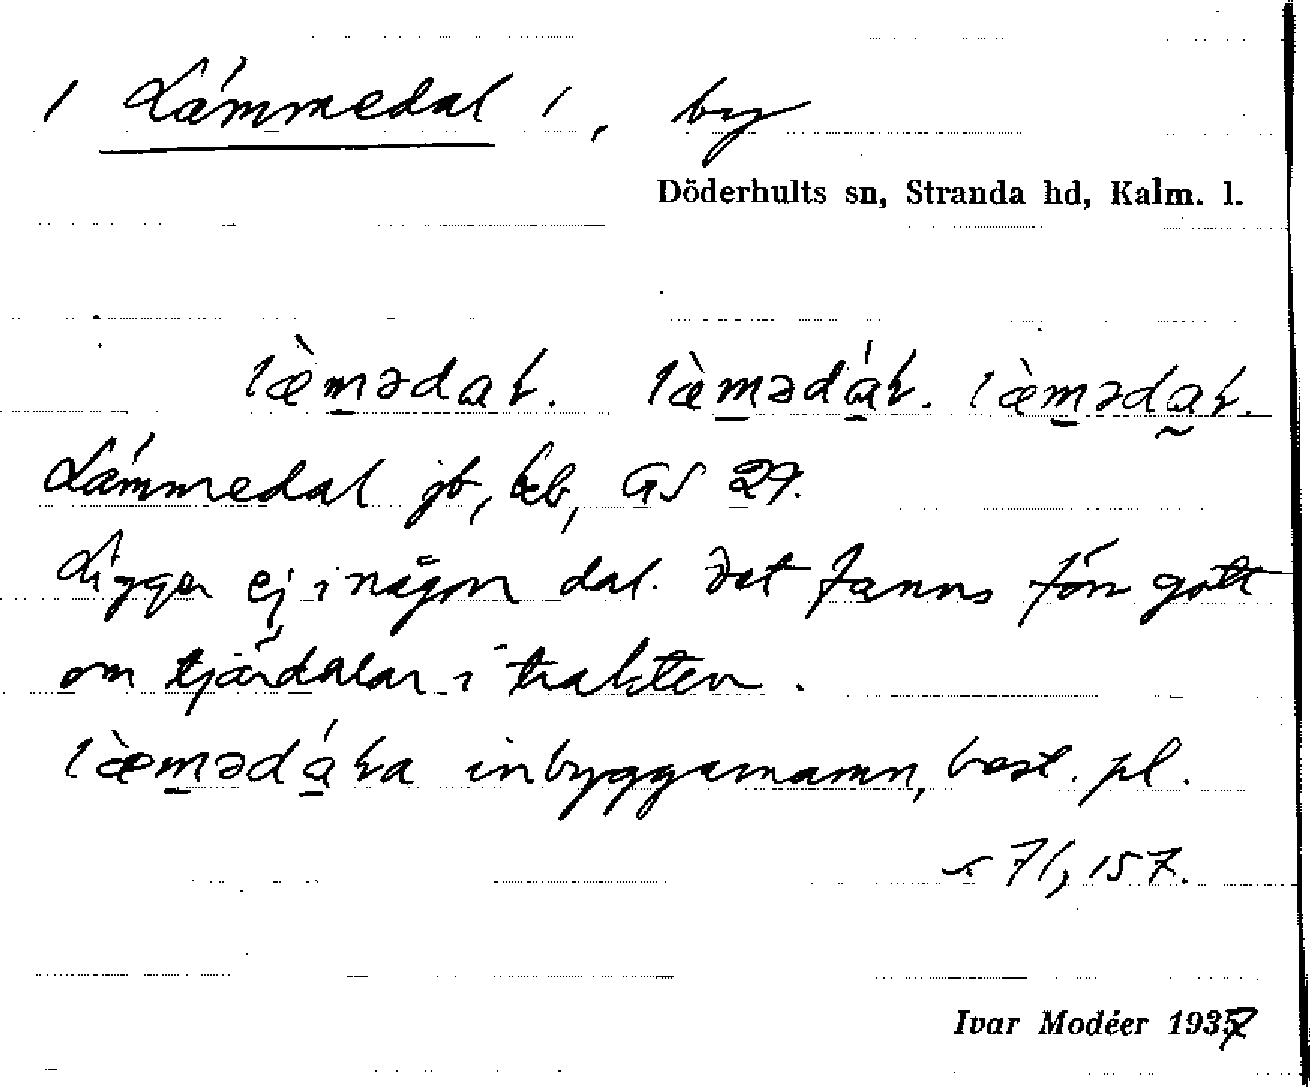 / Lämmedal /, by
Döderhults sn, Stranda hd, Kalm. l.
læ̀m̲ədaɫ. læ̀m̲ədá̲ɫ. læ̀m̲əda̰ɫ.
Lämmedal jb, kb, GS 29.
Ligger ej i någon dal. Det fanns förr gott
om tjärdalar i trakten.
læ̀m̲ədá̲ɫa inbyggarnamn, best. pl.
s 71, 157.
Ivar Modéer 1937